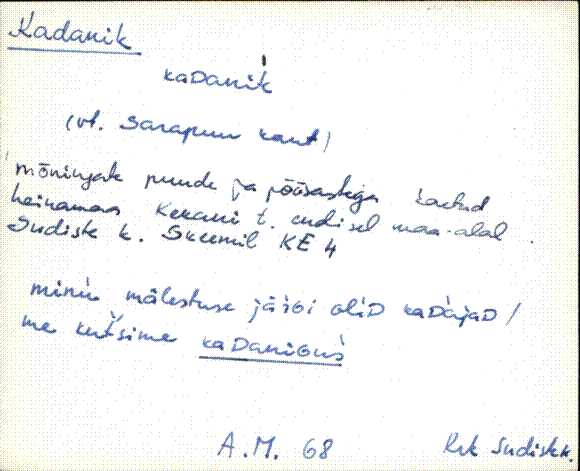 Kadanik
kaDanik̀
(vt. Sarapuu kant)
mõningate puude ja põõsastega kaetud
heinamaa Kekani t. endisel maa-alal.
Sudiste k. Skeemil KE 4
minu mälestuse järGi oliD kaDajaD /
me kutsime kaDaniGus
A.M. 68 Krk Sudiste k.